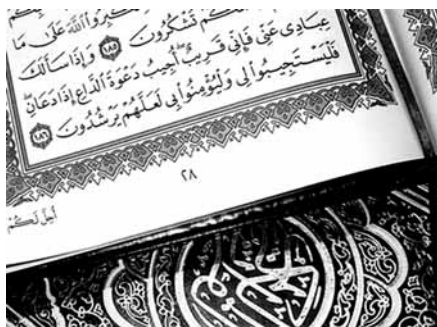 وَلِتُكَبِّرُوا۟ ٱللَّهَ عَلَىٰ مَا
هَدَىٰكُمْ وَلَعَلَّكُمْ تَشْكُرُونَ ١٨٥ وَإِذَا سَأَلَكَ
عِبَادِى عَنِّى فَإِنِّى قَرِيبٌ أُجِيبُ دَعْوَةَ ٱلدَّاعِ إِذَا دَعَانِ
فَلْيَسْتَجِيبُوا۟ لِى وَلْيُؤْمِنُوا۟ بِى لَعَلَّهُمْ يَرْشُدُونَ ١٨٦
٢٨
أُحِلَّ لَكُمْ